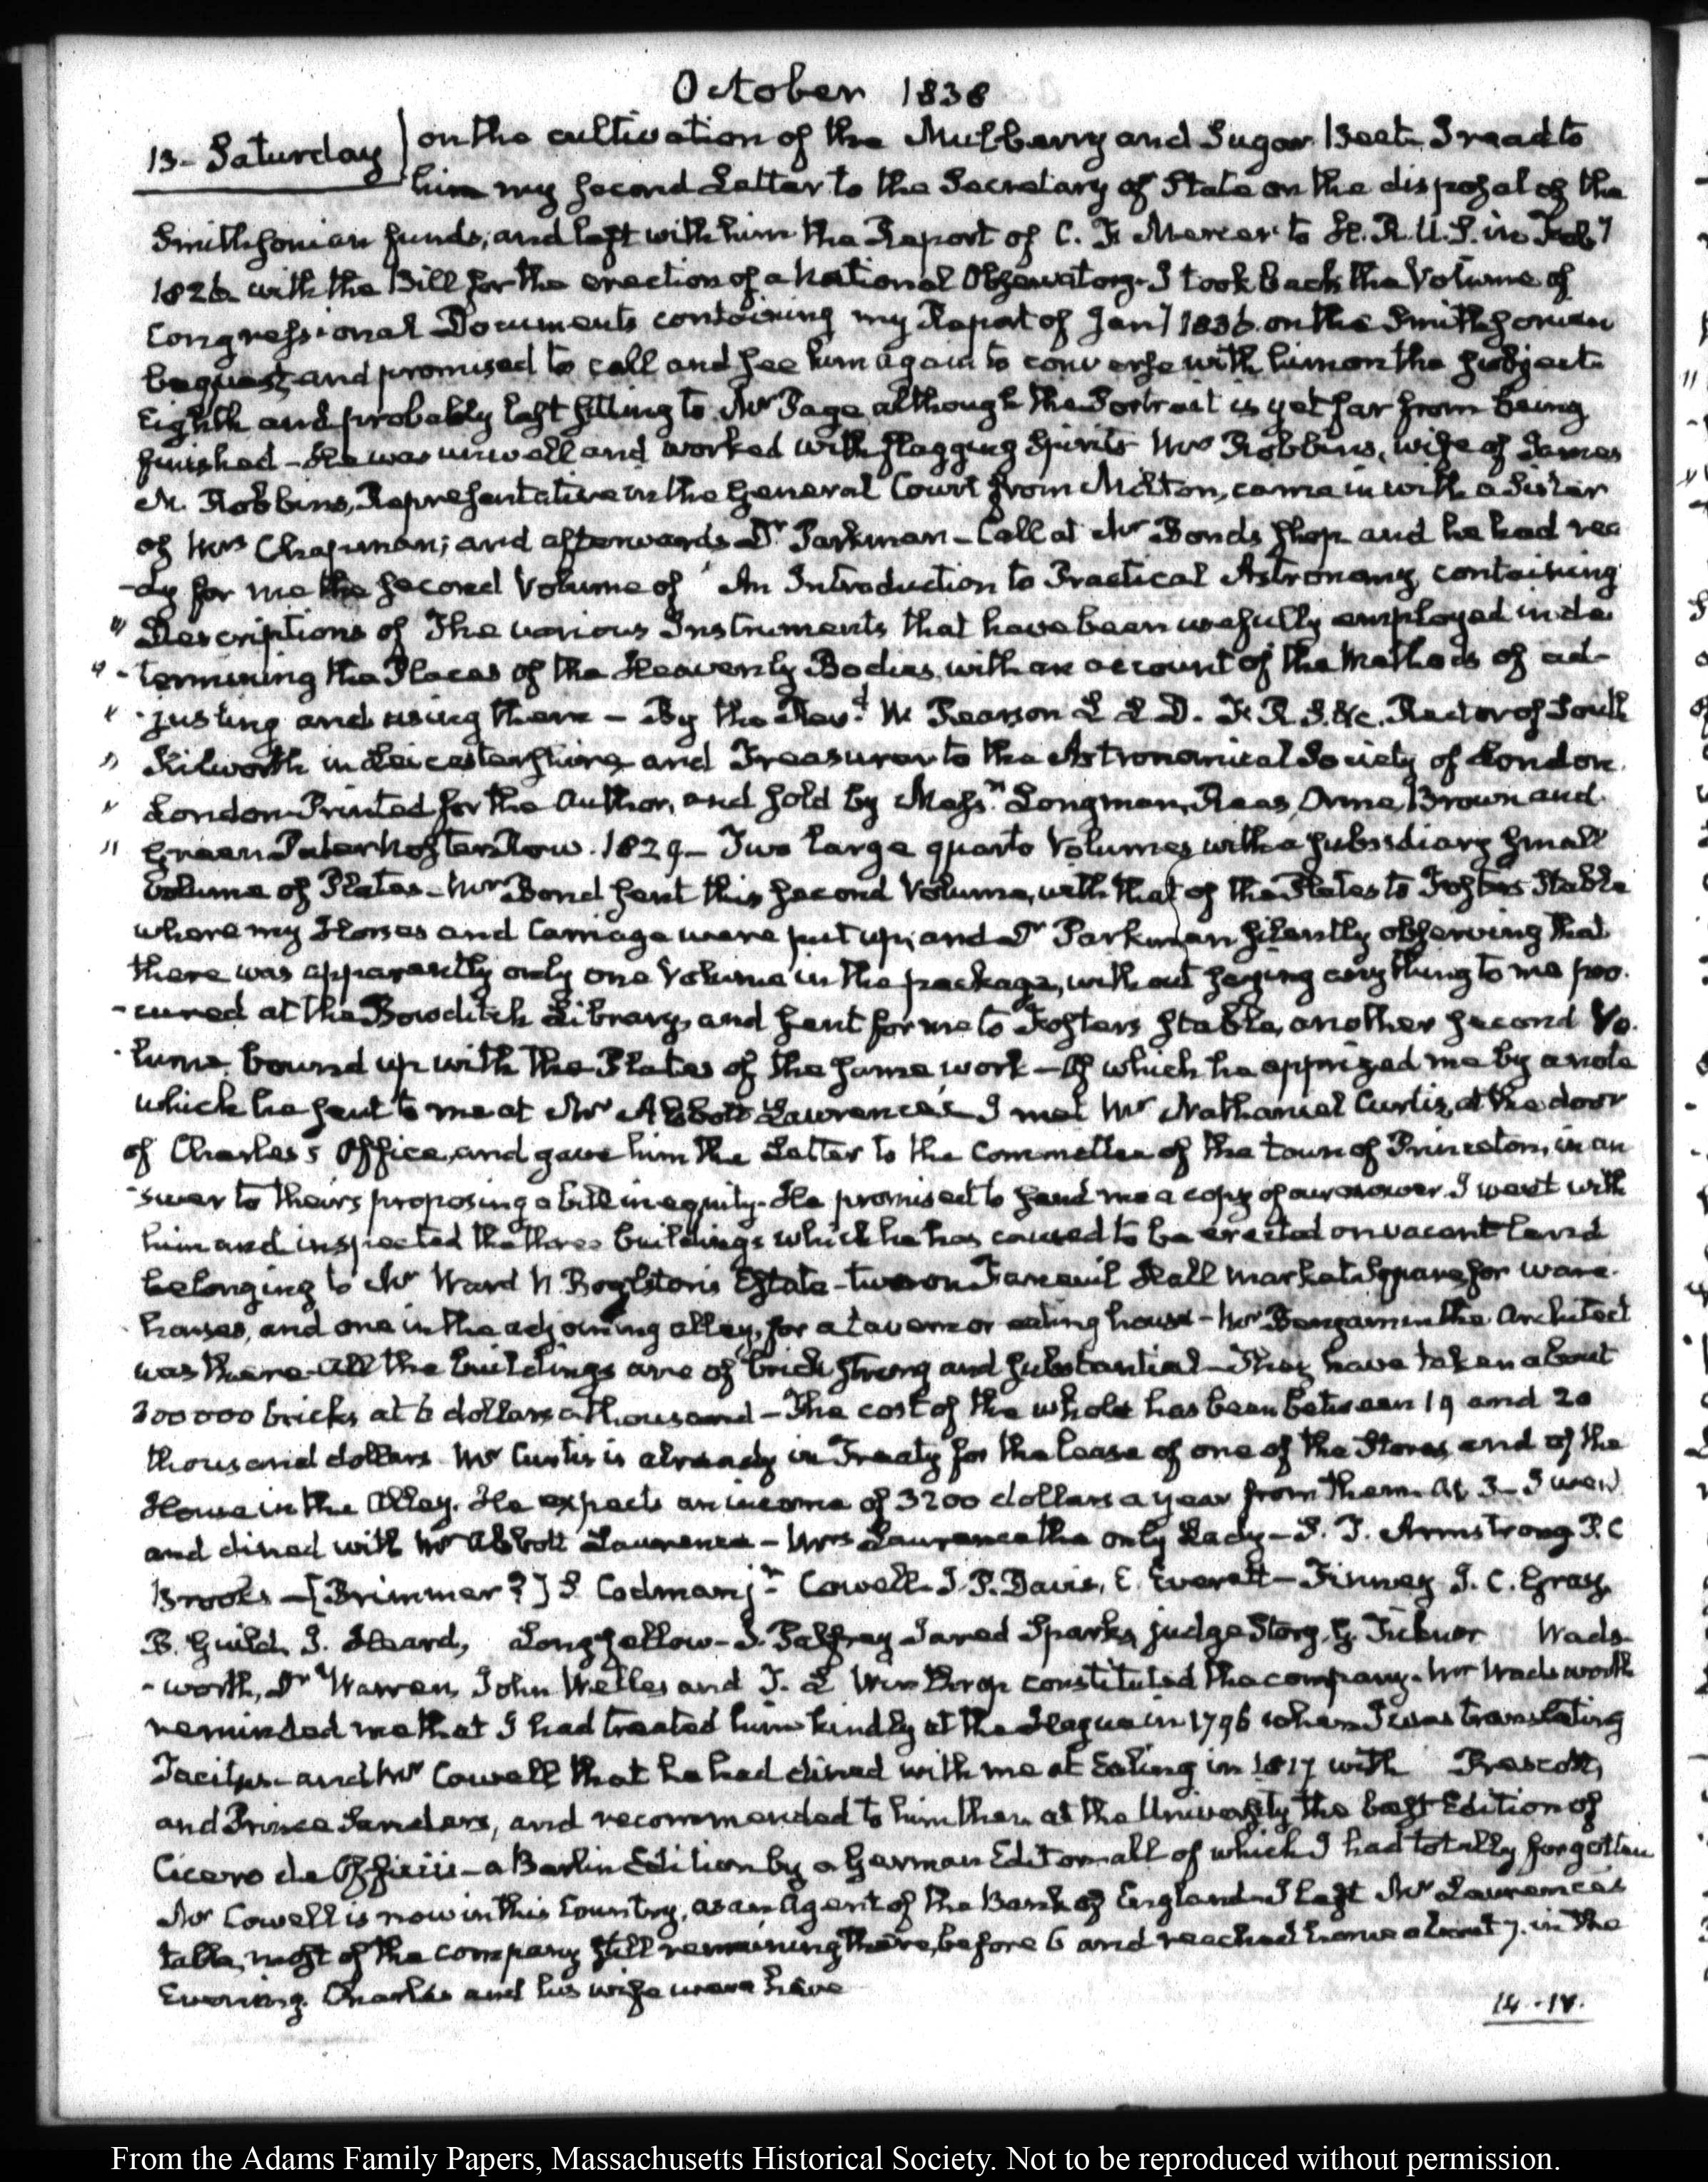 October 1838
13. Saturday } on the cultivation of the Mulberry and Sugar Beet. I read to
him my second Letter to the Secretary of State on the disposal of the
Smithsonian funds; and left with him the Report of C. F. Mercer to H. R. U. S. in Feby
1826 with the Bill for the erection of a National Observatory. I took back the Volume of
Congressional Documents containing my Report of Jany 1836. on the Smithsonian
bequest, and promised to call and see him again to converse with him on the subject.
Eighth and probably last sitting to Mr Page although the Portrait is yet far from being
finished - He was unwell and worked with flagging Spirits - Mrs Robbins, wife of James
M. Robbins, Representative in the General Court from Milton, came in with a Sister
of Mrs Chapman; and afterwards Dr Parkman - Call at Mr Bonds shop and he had rea
-dy for me the second Volume of An Introduction to Practical Astronomy, containing
" Descriptions of The various Instruments that have been usefully employed in de
" -termining the Places of the Heavenly Bodies, with an account of the Methods of ad-
" -justing and using them - By the Revd W Pearson L L D. F. R. S. &c. Rector of South
" Kilworth in Leicestershire, and Treasurer to the Astronomical Society of London.
" London Printed for the Author, and sold by Messrs Longman, Rees, Orme, Brown and
" Green Paternoster Row. 1829 - Two large quarto Volumes with a subsidiary small
volume of Plates - Mr Bond sent this second Volume, with that of the Plates to Fosters Stable
where my Horses and Carriage were put up; and Dr Parkman silently observing that
there was apparently only one Volume in the package, without saying any thing to me pro-
-cured at the Bowditch Library, and sent for me to Fosters Stable, another second Vo-
-lume, bound up with the Plates of the same work - Of which he apprized me by a note
which he sent to me at Mr Abbott Lawrence's - I met Mr Nathaniel Curtis, at the door
of Charles's Office, and gave him the Letter to the Committee of the town of Princeton, in an
-swer to theirs proposing a bill in equity. He promised to send me a copy of our answer. I went with
him and inspected the three buildings which he has caused to be erected on vacant land
belonging to Mr Ward N. Boylston's Estate - two on Faneuil Hall Market Square, for ware-
-houses, and one in the adjoining alley, for a tavern or eating house - Mr Benjamin the Architect
was there - all the buildings are of brick strong and substantial - They have taken about
300 000 bricks, at 6 dollars a thousand - The cost of the whole has been between 19 and 20
thousand dollars. Mr Curtis is already in Treaty for the lease of one of the Stores, and of the
House in the Alley. He expects an income of 3200 dollars a year from them. At 3 - I went
and dined with Mr Abbott Lawrence - Mrs Lawrence the only Lady - S. T. Armstrong P. C
Brooks - [Brimmer?] S. Codman jr Cowell J. P. Davis, E. Everett - Finney J. C. Gray,
B. Guild J. Heard, Longfellow - J. Palfrey Jared Sparks, judge Story, G. Ticknor Wads-
-worth, Dr Warren, John Welles and T. L Winthrop constituted the company. Mr Wadsworth
reminded me that I had treated him kindly at the Hague in 1796 when I was translating
Tacitus - and Mr Cowell that he had dined with me at Ealing in 1817 with Prescott,
and Prince Sanders, and recommended to him then at the University the best Edition of
Cicero de Officiis - a Berlin Edition by a German Editor - all of which I had totally forgotten
Mr Cowell is now in this Country, as an Agent of the Bank of England - I left Mr Lawrence's
table, most of the company still remaining there, before 6 and reached home about 7. in the
Evening. Charles and his wife were here
14.-IV.
From the Adams Family Papers, Massachusetts Historical Society. Not to be reproduced without permission.